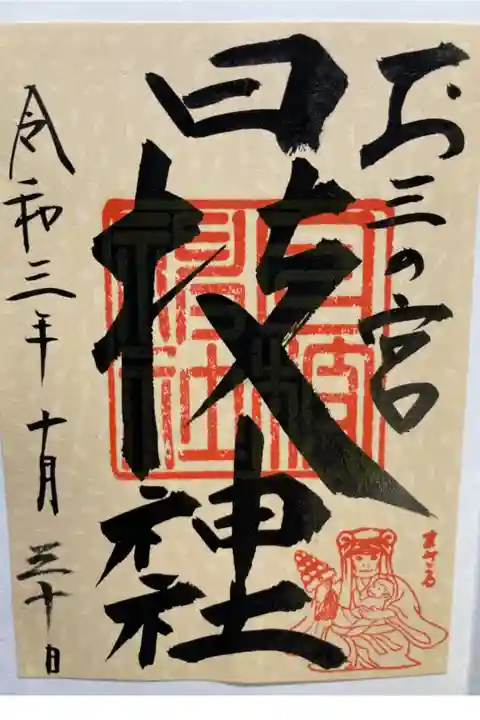 お三の宮
日枝神社
令和三年十月三十日
日枝神社
まさる